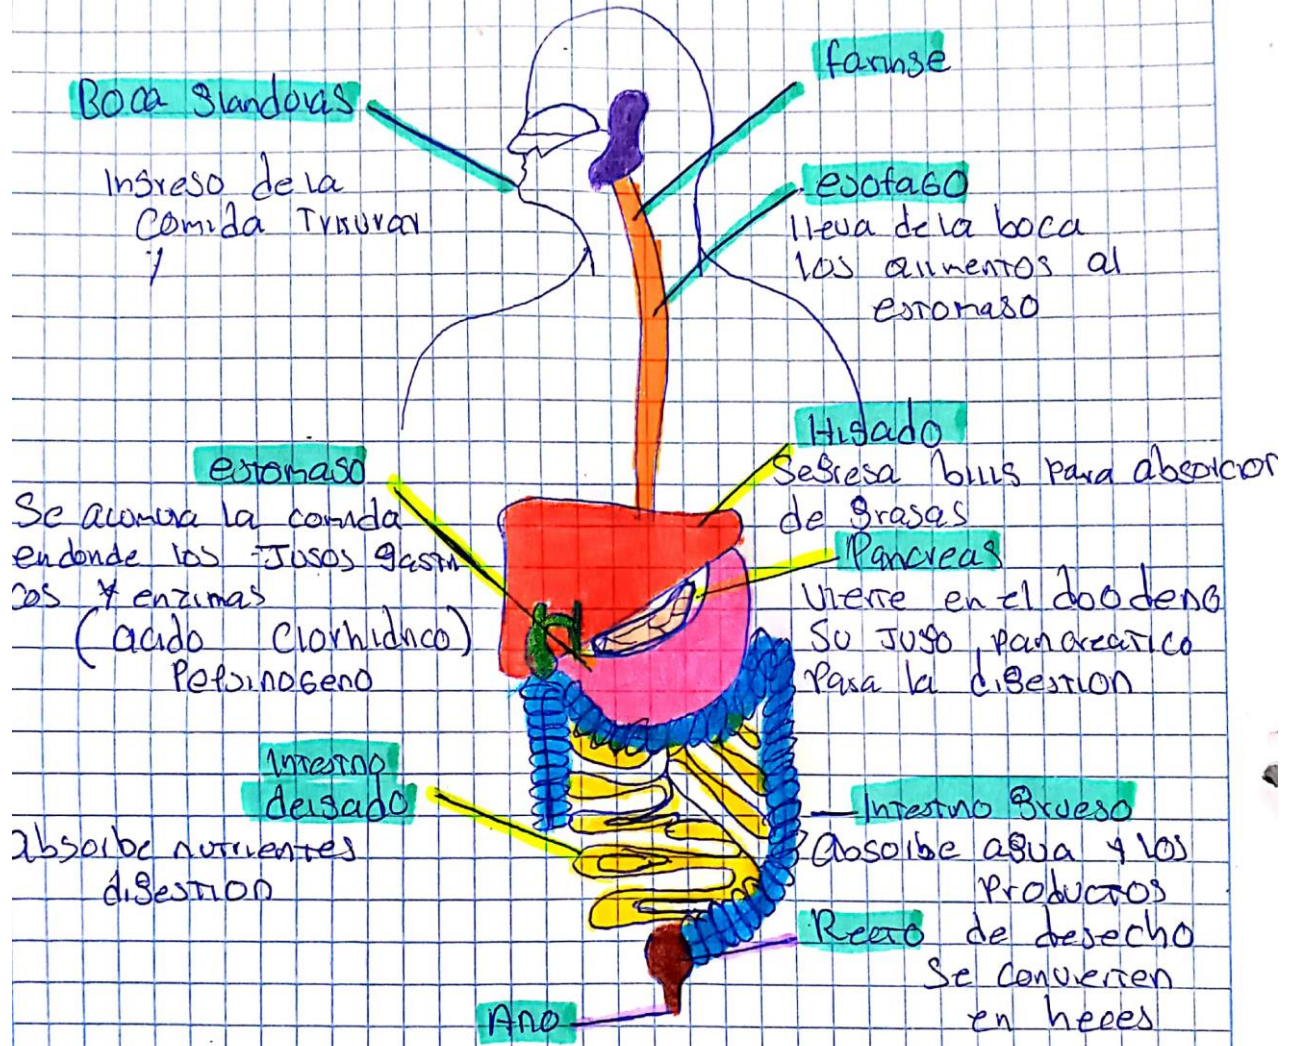 Boca glandulas
Ingreso de la
Comida Triturar
y
faringe
esofago
lleva de la boca
los alimentos al
estomago
Higado
Segrega bilis para absorcion
de grasas
estomago
Se acomula la comida
en donde los Jugos gastri
cos y enzimas
(acido Clorhidrico)
Pepsinogeno
Pancreas
vierte en el doodeno
su Jugo pancreatico
para la digestion
Intestino
delgado
absorbe nutrientes
digestion
Intestino grueso
absorbe agua y los
productos
Recto de desecho
Se convierten
en heces
Ano